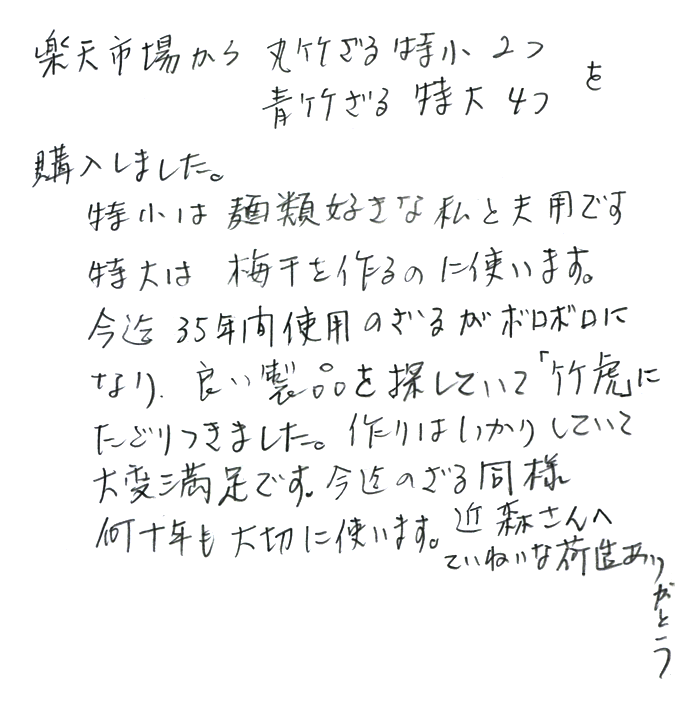 楽天市場から 丸竹ざる特小 2つ
青竹ざる 特大 4つ を
購入しました。
特小は 麺類好きな私と夫用です
特大は 梅干を作るのに使います。
今迄 35年間使用のざるがボロボロに
なり、良い製品を探していて「竹虎」に
たどりつきました。作りはしっかりしていて
大変満足です。今迄のざる同様
何十年も大切に使います。近森さんへ
ていねいな荷造ありがとう